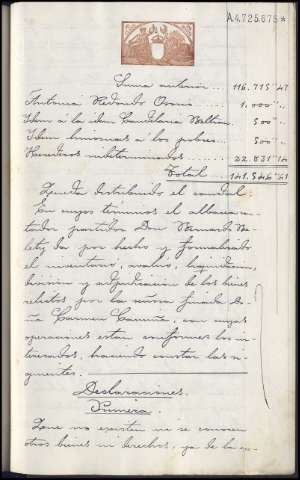 A4.725.675*
Suma anterior... 116.715'47
Antonia Redondo ... 1.000"
Idem á la idem Candelaria 500"
Idem limosnas á los pobres 500"
Herederos 22.831'14
Total... 141.546'61
Queda distribuido el caudal.
En cuyos términos el albacea con-
tador partidor Don Bernardo
da por hecho y formalizado
el inventario, avaluo, liquidacion,
division y adjudicacion de los bienes
relictos por la señora finada Do-
ña Carmen, con cuyas
operaciones están conformes los in-
teresados, haciendo constar las si-
guientes.
Declaraciones.
Primera.
Que no existen ni se conocen
otros bienes ni derechos, ya de la